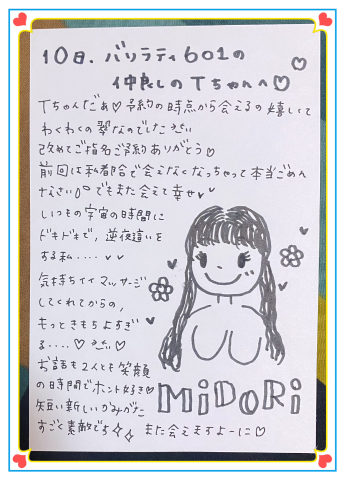 10日. バリラティ601の
仲良しのTちゃんへ♡
Tちゃんだぁ♡予約の時点から会えるの嬉しくて
わくわくの翠なのでした
改めてご指名ご予約ありがとう♡
前回は私都合で会えなくなっちゃって本当ごめん
なさい でもまた会えて幸せ
いつもの宇宙の時間に
ドキドキで、逆夜這いを
する私....
気持ちイイマッサージ
してくれてからの,
もっときもちよすぎ
る....♡
お話も2人とも笑顔
の時間でホント好き♡
短い新しいかみがた
すごく素敵でち また会えますよーに♡
MiDORi